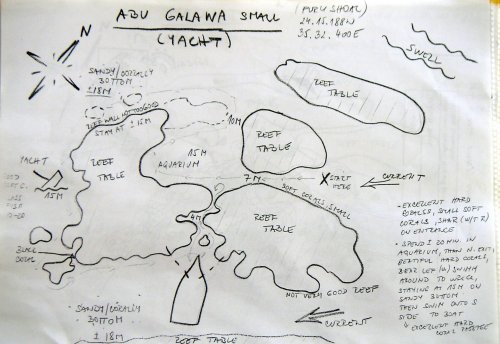 ABU GALAWA SMALL
(YACHT)
(FURY SHOAL)
24.15.188N
35.32.400E
N
SWELL
SANDY/CORALLY
BOTTOM
±18M
REEF WALL NOT TOO GOOD
STAY AT ± 15M
10M
REEF
TABLE
REEF
TABLE
REEF
TABLE
15M
AQUARIUM
YACHT
15M
7M
X START
HERE
CURRENT
SOFT CORALS, SMALL
4M
REEF
TABLE
BLACK
CORAL
NOT VERY GOOD REEF
- EXCELLENT HARD
CORALS, SMALL SOFT
CORALS, SHARK (W/T R)
ON ENTRANCE
- SPEND 10 MIN. IN
AQUARIUM, THAN N. EXIT
BEAUTIFUL HARD CORALS,
BEAR LEFT SWIM
AROUND TO WRECK,
STAYING AT 15M ON
SANDY BOTTOM
THEN SWIM ONTO S
SIDE TO BOAT
EXCELLENT HARD
CORAL
SANDY/CORALLY
BOTTOM
± 18M
CURRENT
REEF TABLE